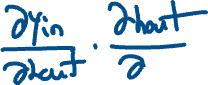 ∂yin/∂hout · ∂hout/∂